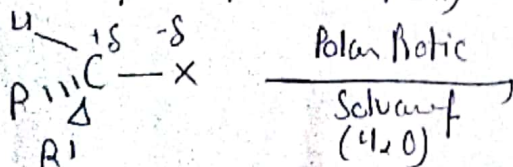 H +δ -δ
R C — X Polar Protic
R' Solvent
(H2O)